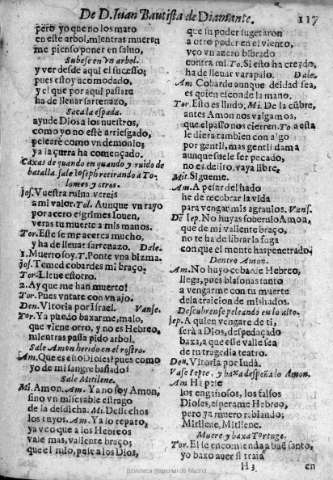 De D. Iuan Bautista de Diamante. 117
pero yo que no los mato
en este arbol, mientras mueren
me pienso poner en salvo,
Subese en vn arbol.
y ver desde aqui el sucesso;
pues estoy acomodado
y el que por aqui passare
ha de llevar sartenazo,
Saca la espada.
ayude Dios a los nuestros,
como yo no esté arriesgado,
peleare como vn demonio
ya la zurra ha començado,
Caxas de quando en quando y ruido de
batalla, sale Ioseph retirando a To-
lomeo y otros.
Jos. Vuestra ruina vereis
a mi valor. Tol. Aunque vn rayo
por azero esgrimes Iouen,
verás tu muerte a mis manos.
Tor. Este se me acerca mucho,
y ha de llevar sartenazo. Dale.
1. Muerto soy. T. Ponte vna bizma.
Jos. Temed cobardes mi braço;
Tor. Littue estorno.
2. Ay que me han muerto!
Tor. Pues vntate con vn ajo.
Den. Vitoria por Israel. Vanse.
Tor. Ya puedo baxarme, malo,
que viene otro, y no es Hebreo,
mientras passa pido arbol.
Sale Amon herido en el rostro.
Am. Que es esto Dioses! pues como
yo de mi sangre bañado?
Sale Mitilene.
Mi. Amon. Am. Ya no soy Amon,
sino vn miserable estrago
de la desdicha. Mi. Desechos
los tuyos. Am. Ya lo reparo,
ya veo que a los Hebreos
vale mas, valiente braço;
que el mio, pese a los Dios,
que su poder sugetaron
a otro poder en el viento,
yo vn azero bibrado
contra mi. To. Si esto ha creydo,
ha de llevar varapalo. Dale.
Am. Cobarde aunque deidad sea,
es quien esconde la mano.
Tor. Esto es lindo. Mi. De la cumbre,
antes Amon nos valgamos,
que el passo nos cierren. To. a esta
le diera tambien con algo
por gentil, mas gentil dama
aunque suele ser pecado,
no es delito, vaya libre.
Mi. Sigueme.
Am. A pesar del hado
he de recobrar la vida
para vengar mis agravios. Vanse.
De Iep. No huyas soberuio Amon,
que de mi valiente braço,
no te ha de librar la fuga
con que el monte has penetrado:
Dentro Amon.
Am. No huyo cobarde Hebreo,
llego, pues blasonas tanto
a vengarme con tu muerte
de la traicion de mis hados.
Descubrense peleando en lo alto.
Iep. A quien vengare de ti,
será a Dios, despedaçado
baxa, a que esse valle sea
de tu tragedia teatro.
Den. Vitoria por Iuda.
Vase Iepte, y baxa despeñado Amon.
Am. Hi pese
los engañosos, los falsos
Dioses, esperame Hebreo,
pero ya muero rabiando;
Mitilene, Mitilene.
Muere y baxa Tortuga.
Tor. El se encomienda a buē santo,
yo baxo a ver si traia
H3 en
Biblioteca Regional de Madrid